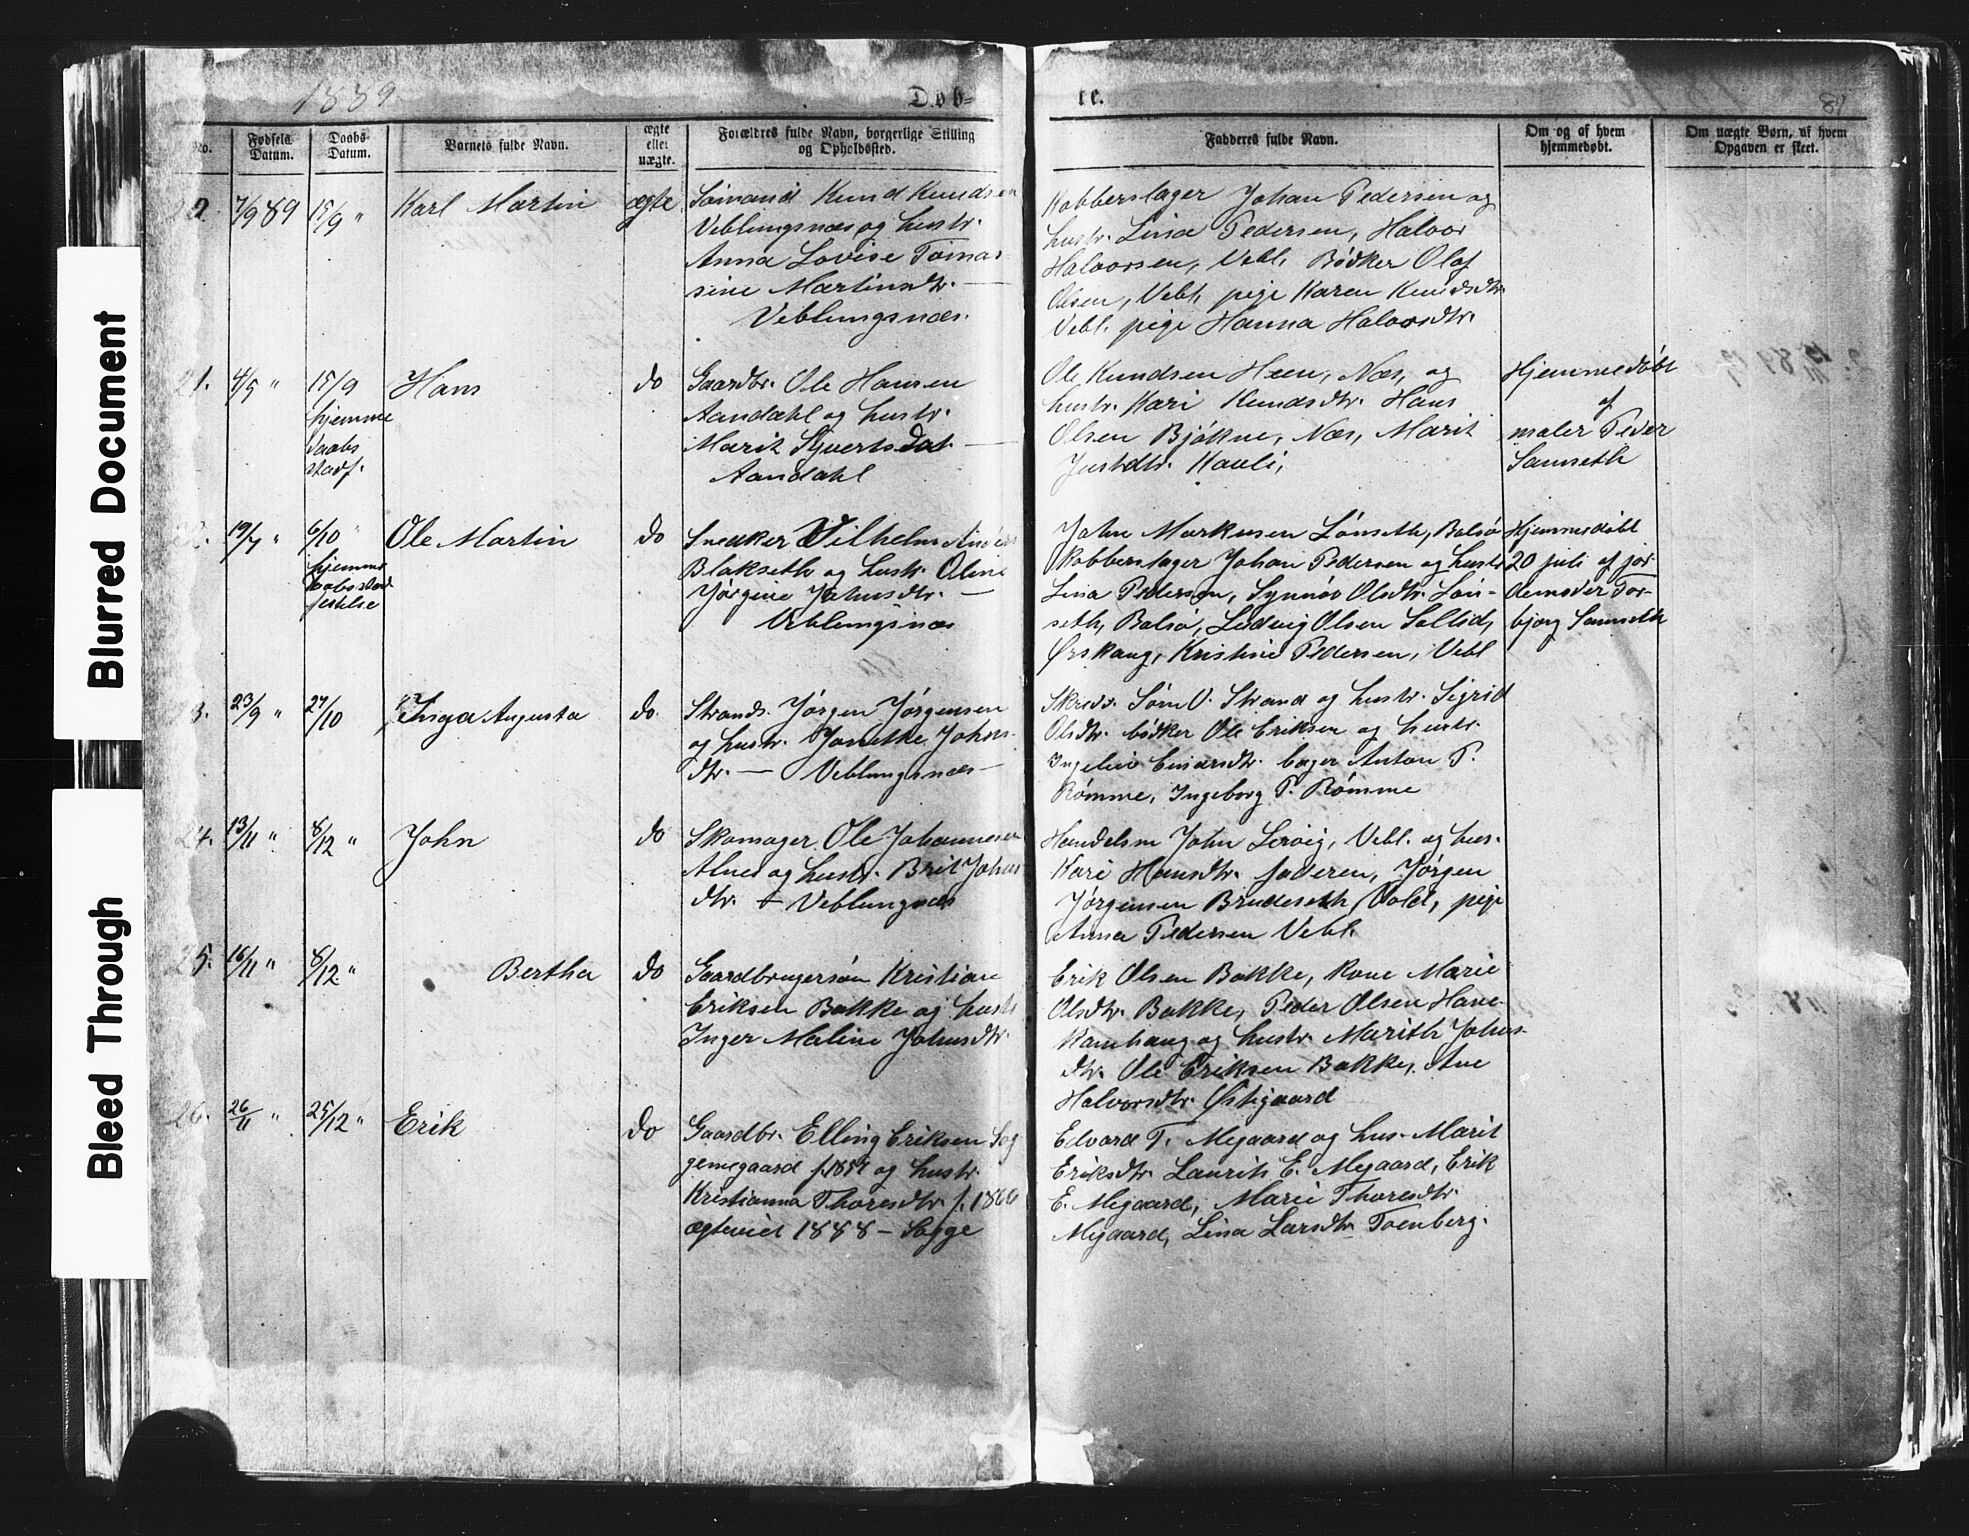 Blurred Document
Bleed Through
1889
Døb-
te.
81
No.
Fødsels
Datum.
Daabs
Datum.
Barnets fulde Navn.
ægte
eller
uægte.
Forældres fulde Navn, borgerlige Stilling
og Opholdssted.
Fadderes fulde Navn.
Om og af hvem
hjemmedøbt.
Om uægte Børn, af hvem
Opgaven er skeet.
7/9 89
15/9 "
Karl Martin
ægte
Sømand Knud Knudsen
Veblungsnæs og hustr.
Anna Lovise Tomas-
sine Martinsdtr. —
Veblungsnæs.
Kobberslager Johan Pedersen og
hustr. Lina Pedersen, Halvor
Halvorsen, Vebl, Bødker Olaf
Olsen, Vebl, pige Karen Knudsdtr.
Vebl. pige Hanna Halvorsdtr.
21.
4/5 "
15/9
hjemme
daabs
stadf.
Hans
do
Gaardbr. Ole Hansen
Aandahl og hustr.
Marit Sjvertsdat. —
Aandahl
Ole Knudsen Heen, Næs, og
hustr. Kari Knudsdtr. Hans
Olsen Bjøkne, Næs, Marit
Justdtr. Kavli,
Hjemmedøbt
af
maler Peder
Samseth
22.
19/7 "
6/10 "
hjemme
daabsstad
festelse
Ole Martin
do
Snedker Vilhelm Anders
Blakseth og hustr. Oline
Jørgine Johnsdtr. —
Veblungsnæs
John Markusen Lønseth, Bolsø
Kobberslager Johan Pedersen og hustr
Lina Pedersen, Synnøv Olsdtr. Løn-
seth, Bolsø, Ludvig Olsen Soltid,
Ørskaug, Kristine Pedersen, Vebl
Hjemmedøbt
20 juli af jor
demoder Tor-
bjorg Samseth
23.
23/9 "
27/10
Inga Augusta
do.
Strands. Jørgen Jørgensen
og hustr. Jonethe Johns-
dtr. — Veblungsnæs —
Skreds. Søm O. Strand og hustr. Sigrid
Olsdtr. bødker Ole Eriksen og hustr.
Ingeliv Einarsdtr. bager Anton P.
Rømme, Ingeborg P. Rømme
24.
13/11 "
8/12 "
John
do
Skomager Ole Johannesen
Alnes og hustr. Brit Johns
dtr. — Veblungsnæs
Handelsm John Lervig, Vebl. og hus.
Kari Hansdtr. faderen, Jørgen
Jørgensen Brudeseth, Vold, pige
Anna Pedersen Vebl.
25.
16/11 "
8/12 "
Bertha
do
Gaardbrugersøn Kristian
Eriksen Bakke og hustr
Inger Maline Johnsdtr.
Erik Olsen Bakke, Kone Marie
Olsdtr. Bakke, Peder Olsen Have-
kamhaug og hustr. Marith Johns-
dtr. Ole Eriksen Bakke, Ane
Halvorsdtr. Østigaard
26.
26/11 "
25/12 "
Erik
do
Gaardbr. Elling Eriksen Sog
gemegaard f. 1857 og hustr.
Kristianna Thoresdtr f. 1866
ægteviet 1888 — Sogge
Edvard T. Megaard og hus. Marit
Eriksdtr. Laurits E. Megaard, Erik
E. Megaard, Marie Thoresdtr.
Megaard, Lina Larsdtr Toenberg.